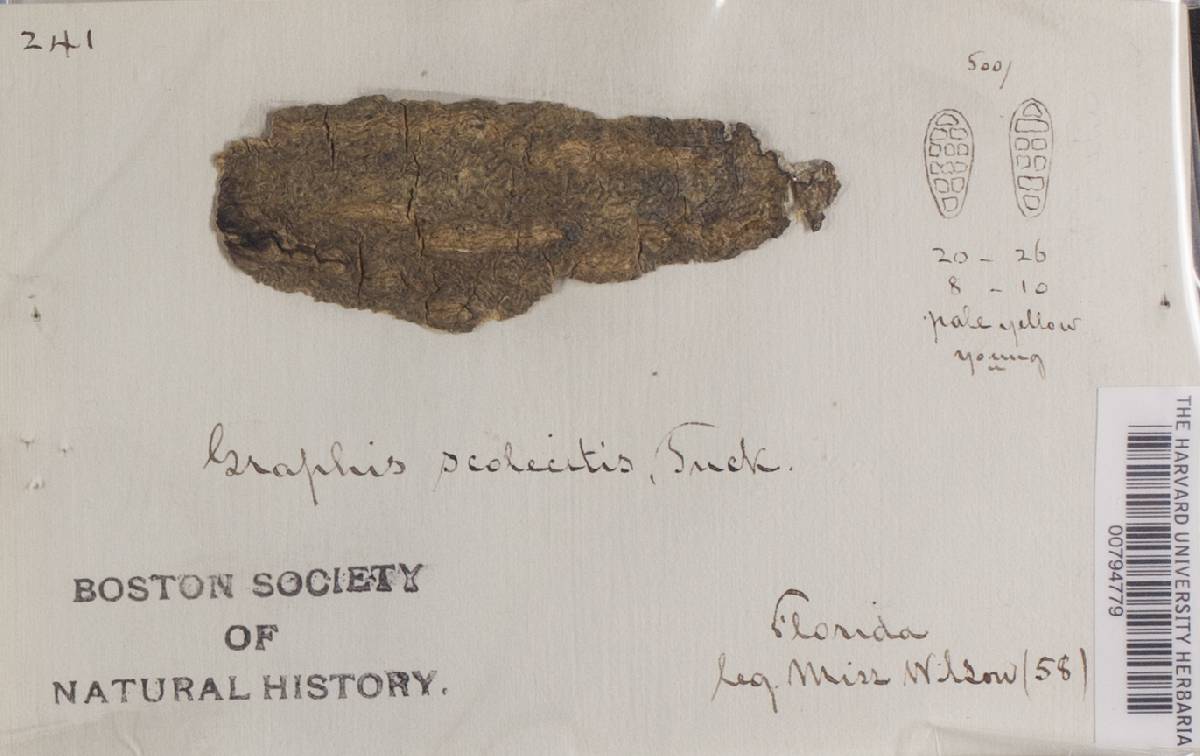 241
500/
20 - 26
8 - 10
pale yellow
young
Graphis scolecitis, Tuck.
BOSTON SOCIETY
OF
NATURAL HISTORY.
Florida
leg. Miss Wilson (58)
THE HARVARD UNIVERSITY HERBARIA
00794779